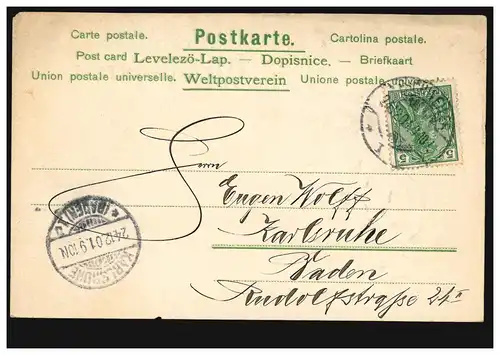 Carte postale. Postkarte. Cartolina postale.
Post card Levelezö-Lap. — Dopisnice. — Briefkaart
Union postale universelle. Weltpostverein Unione postale
5 5
Herrn
Eugen Wolff
Karlsruhe
Baden
Rudolfstrasse 24 II
(BADEN)
24.12.01.9-10N
KARLSRUHE